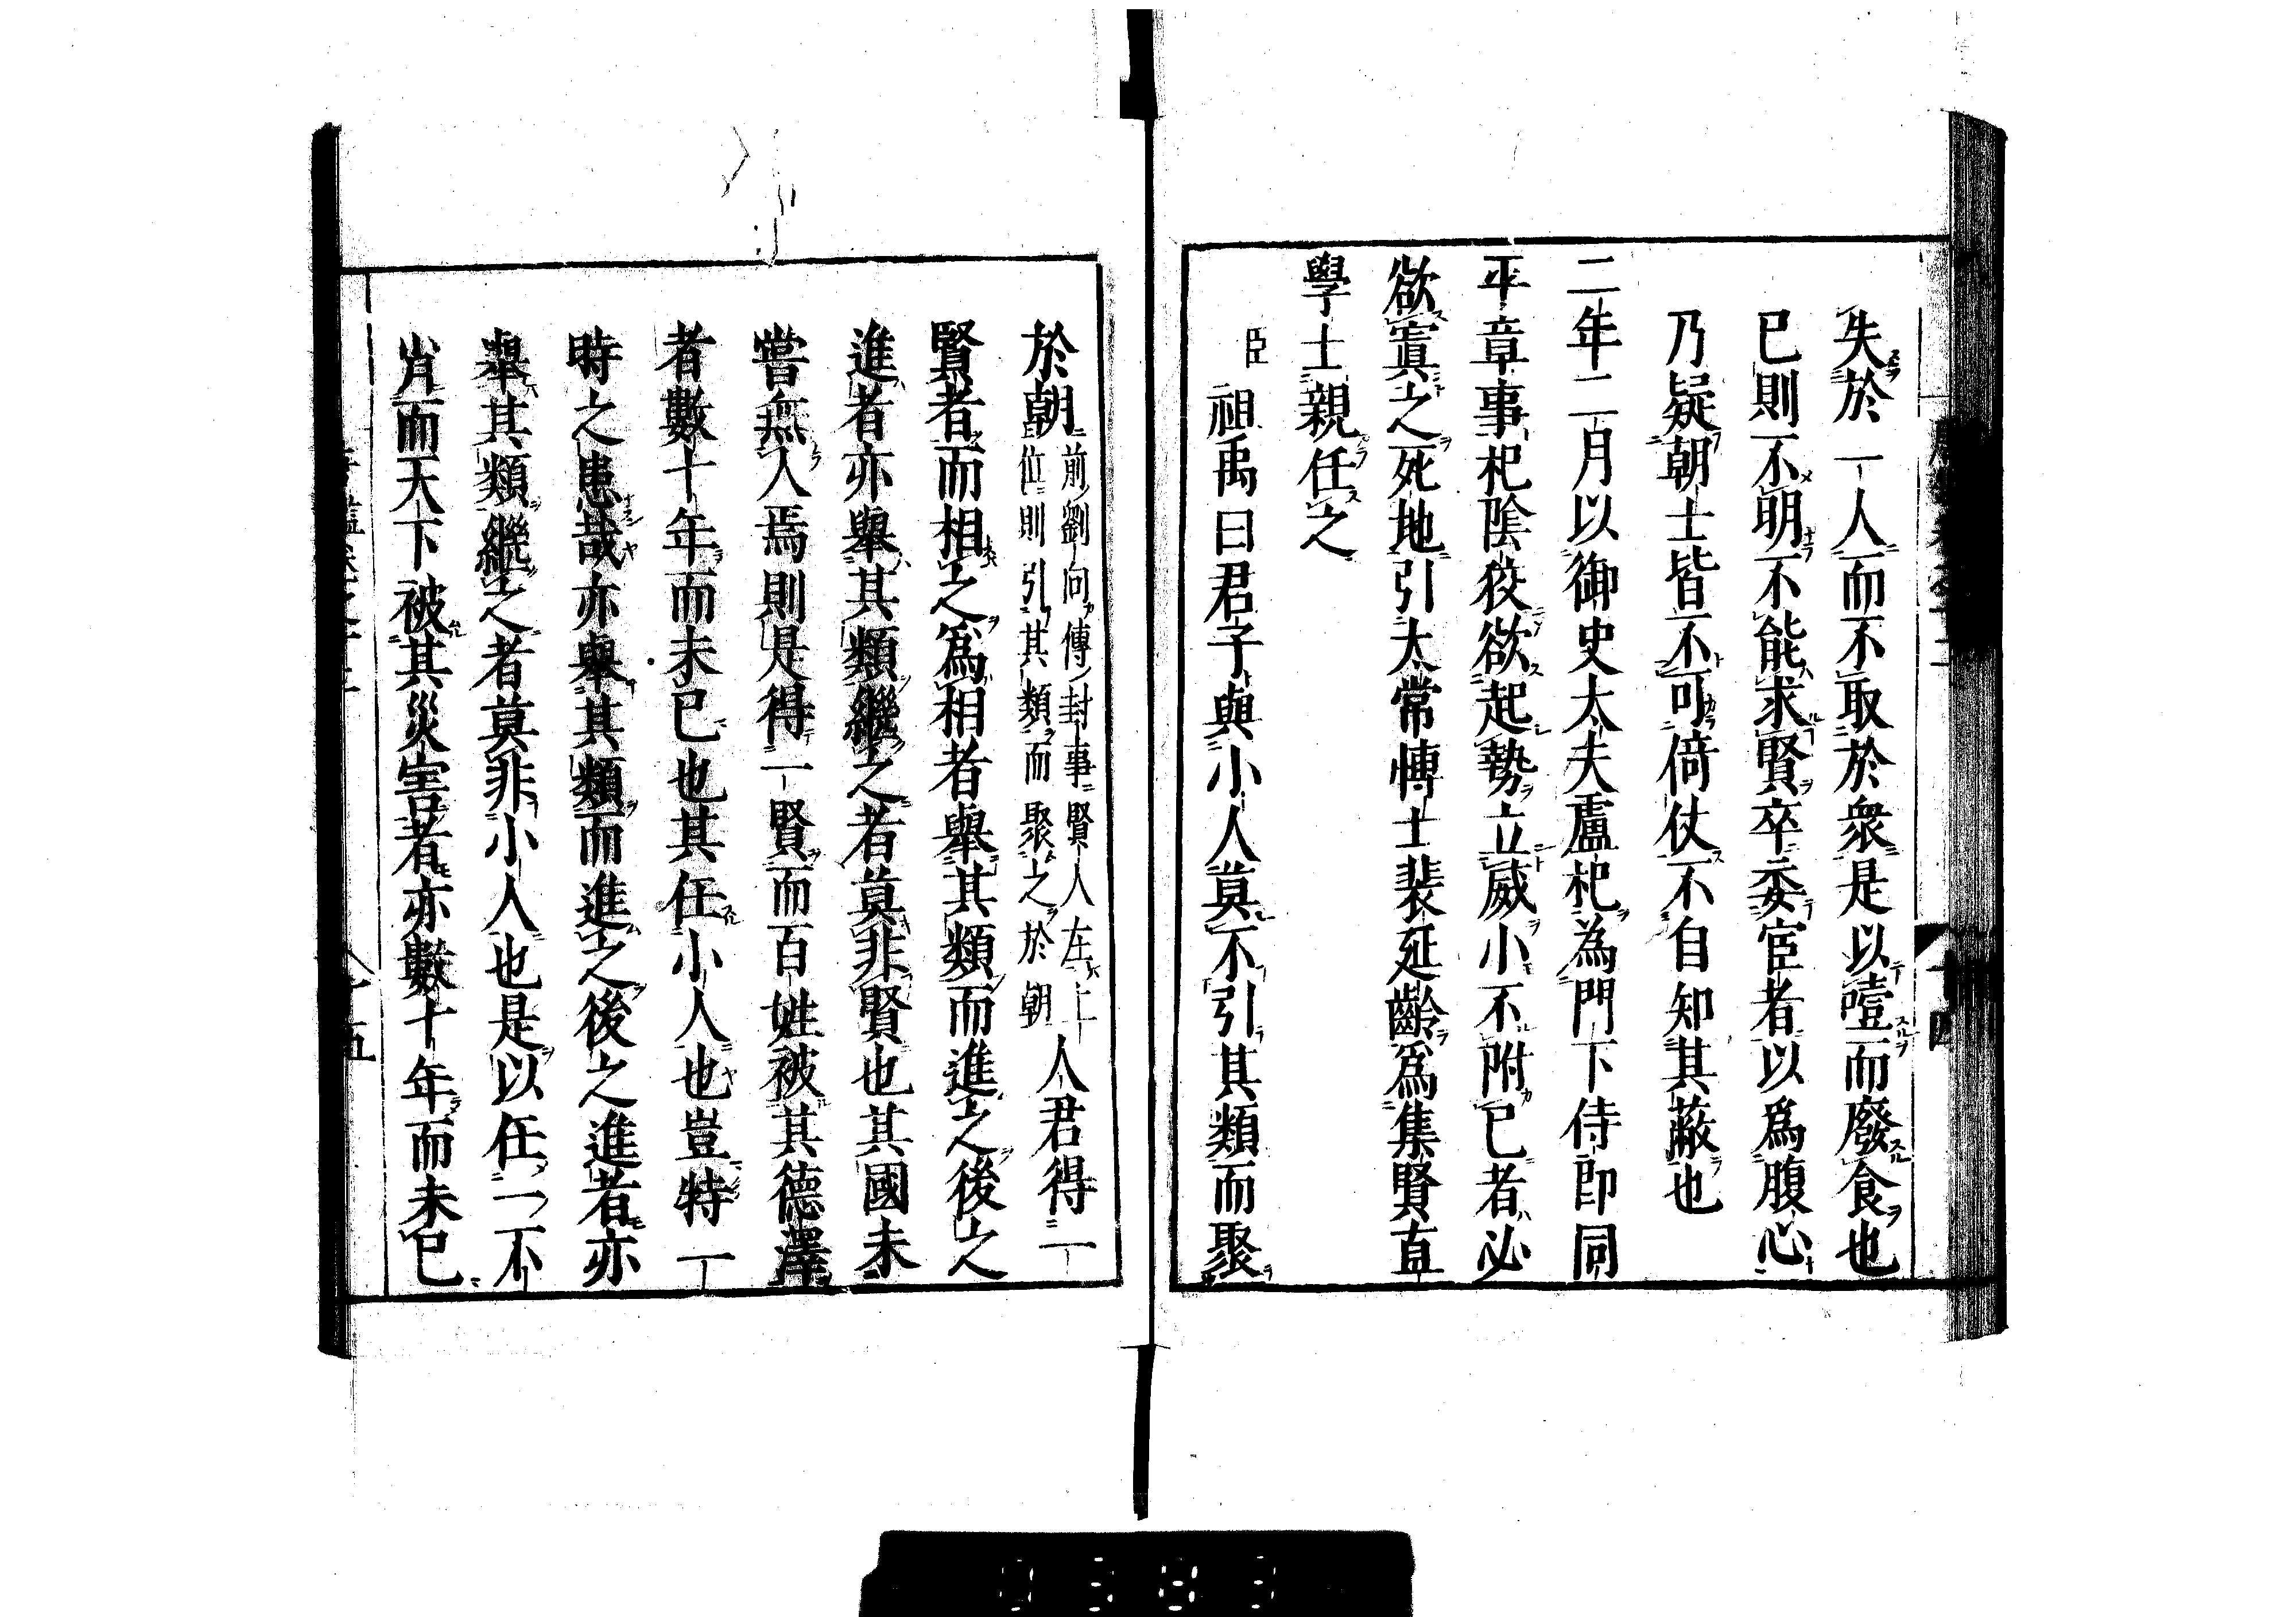 失於一人而不取於衆是以噎而廢食也
已則不明不能求賢卒委宦者以爲腹心
乃疑朝士皆不可倚仗不自知其蔽也
二年二月以御史太夫盧杞為門下侍郎同
平章事杞陰狡欲起勢立威小不附已者必
欲寘之死地引太常博士裴延齡爲集賢直
學士親任之
臣祖禹曰君子與小人莫不引其類而聚
於朝
前劉向傳封事賢人左上
位則引其類而聚之於朝
人君得一
賢者而相之爲相者舉其類而進之後之
進者亦舉其類繼之者莫非賢也其國未
嘗無人焉則是得一賢而百姓被其德澤
者數十年而未已也其任小人也豈特一
時之患哉亦舉其類而進之後之進者亦
舉其類繼之者莫非小人也是以任一不
肖而天下被其災害者亦數十年而未已